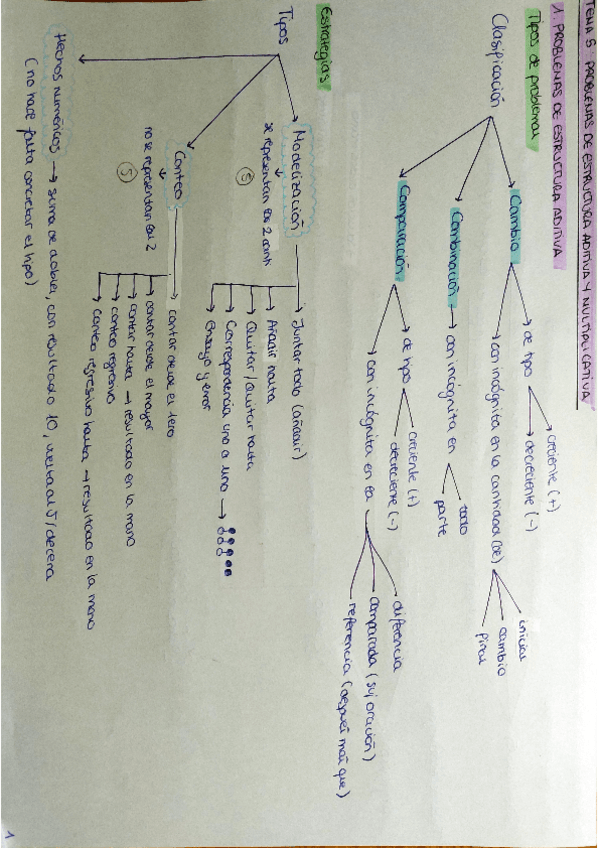 TEMA 5: PROBLEMAS DE ESTRUCTURA ADITIVA Y MULTIPLICATIVA
1. PROBLEMAS DE ESTRUCTURA ADITIVA
Tipos de problemas
Clasificación
Cambio
de tipo
creciente (+)
decreciente (-)
con incógnita en la cantidad (de)
inicial
cambio
final
Combinación
con incógnita en
todo
parte
Comparación
de tipo
creciente (+)
decreciente (-)
con incógnita en la
diferencia
comparada (suj oración)
referencia (después más que)
Estrategias
Tipos
Modelización
se representan las 2 cant
5
Juntar todo (añadir)
Añadir hasta
Quitar / Quitar hasta
Correspondencia uno a uno →
Ensayo y error
Conteo
no se representan las 2
5
contar desde el 1ero
contar desde el mayor
contar hasta → resultado en la mano
conteo regresivo
conteo regresivo hasta → resultado en la mano
Hechos numéricos → suma de dobles, con resultado 10, vuelta al 5/decena
(no hace falta concretar el tipo)
1